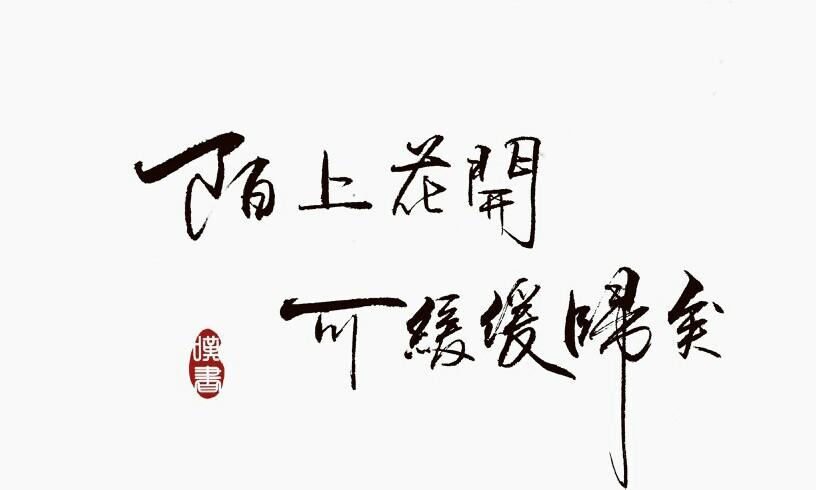 陌上花開
可緩緩歸矣
嘆書